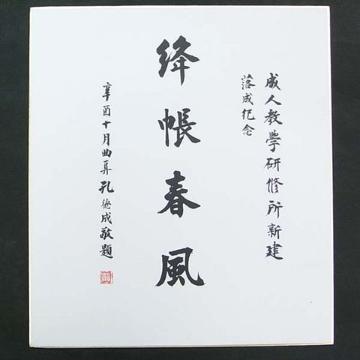 成人教學研修所新建
落成纪念
絳帳春風
辛酉十月曲阜孔德成敬題